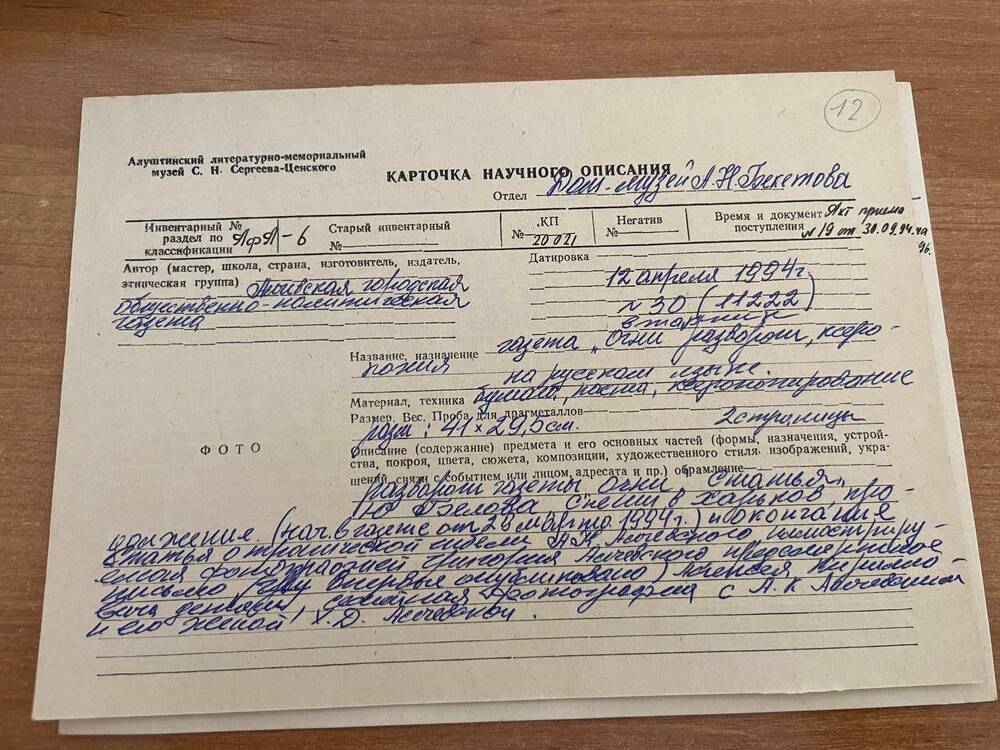 12
Алуштинский литературно-мемориальный
музей С. Н. Сергеева-Ценского
КАРТОЧКА НАУЧНОГО ОПИСАНИЯ
Отдел Дом-музей А.Н.Бекетова
Инвентарный № раздел по классификации -6
Старый инвентарный №
КП № 20021
Негатив №
Время и документ поступления Акт приема № 19 от 30.09.94
Автор (мастер, школа, страна, изготовитель, издатель,
этническая группа) городская
общественно-политическая
газета
Датировка
12 апреля 1994г
№ 30 (11222)
вторник
Название, назначение газета „Огни разворот, ксеро-
копия на русском языке.
Материал, техника бумага, ксерокопирование
Размер. Вес. Проба для драгметаллов
разм: 41×29,5см. 2 страницы
ФОТО
Описание (содержание) предмета и его основных частей (формы, назначения, устрой-
ства, покроя, цвета, сюжета, композиции, художественного стиля, изображений, укра-
шений, связи с событием или лицом, адресата и пр.) обрамление
разворот газеты Огни статья
Ю Белова в Харьков про-
должение. (нач. в газете от марта 1994г.) и окончание
статья о трагической гибели А.К Алчевского
фотографией Григория Алчевского предсмертное
письмо впервые опубликовано) Алексея Кирилло-
вича фотография с А.К Алчевским
и его женой, Х.Д. Алчевской.